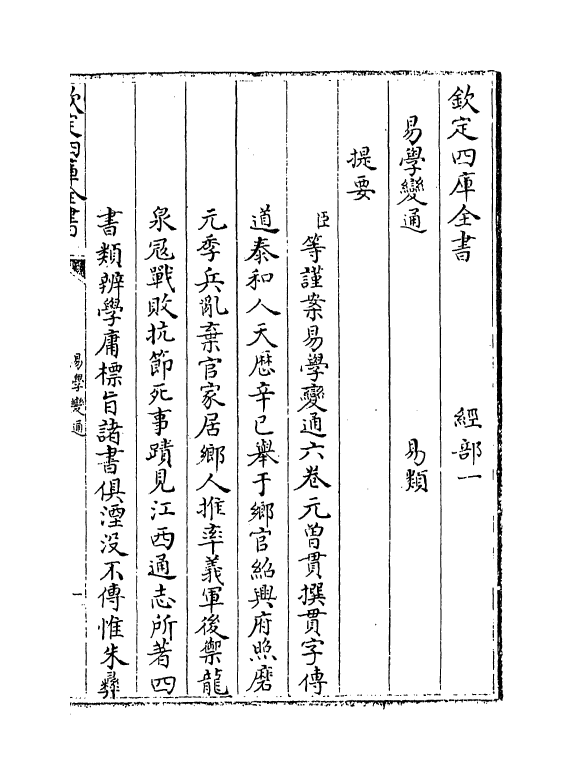 欽定四庫全書　經部一
易學變通　易類
提要
臣等謹案易學變通六卷元曽貫撰貫字傳
道泰和人天厯辛巳舉于鄉官紹興府照磨
元季兵亂棄官家居鄉人推率義軍後禦龍
泉冦戰敗抗節死事蹟見江西通志所著四
書類辨學庸標旨諸書俱湮没不傳惟朱彛
欽定四庫全書
易學變通
一